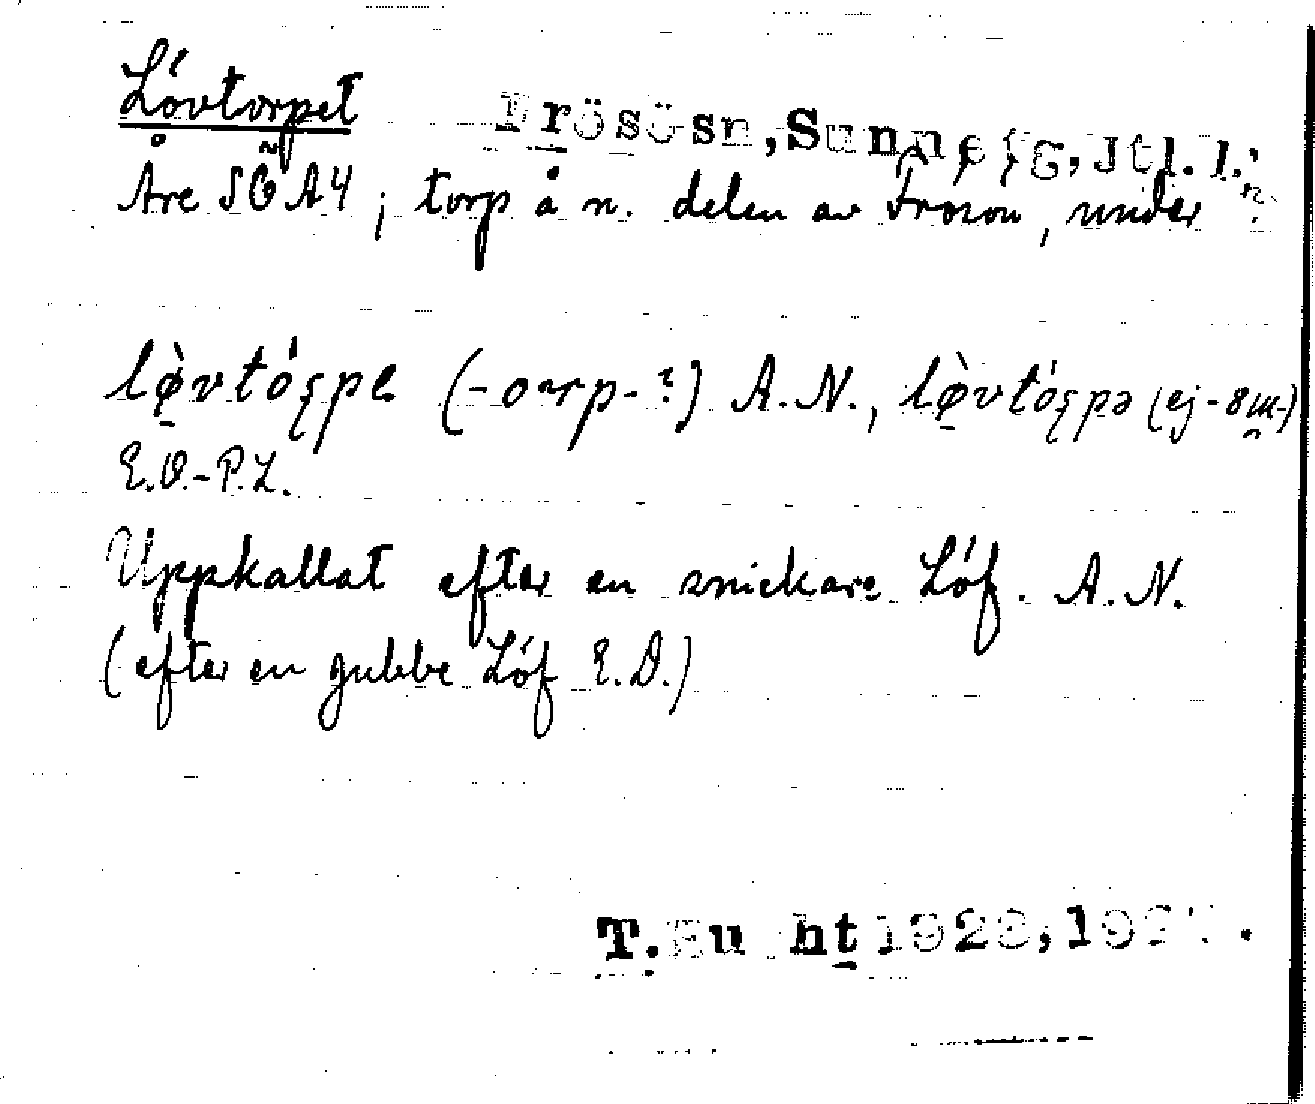 Lövtorpet Frösö sn, Sunne tg, Jtl. l.
Åre SÖ A4, torp å n. delen av Frösön, under
lø̀vtóʂpe (-oarp-?) A.N., lø̀vtóʂpə (ej -8ɯ-)
E.O.-P.L.
Uppkallat efter en snickare Löf. A.N.
(efter en gubbe Löf E.O.)
T. ht 1928,